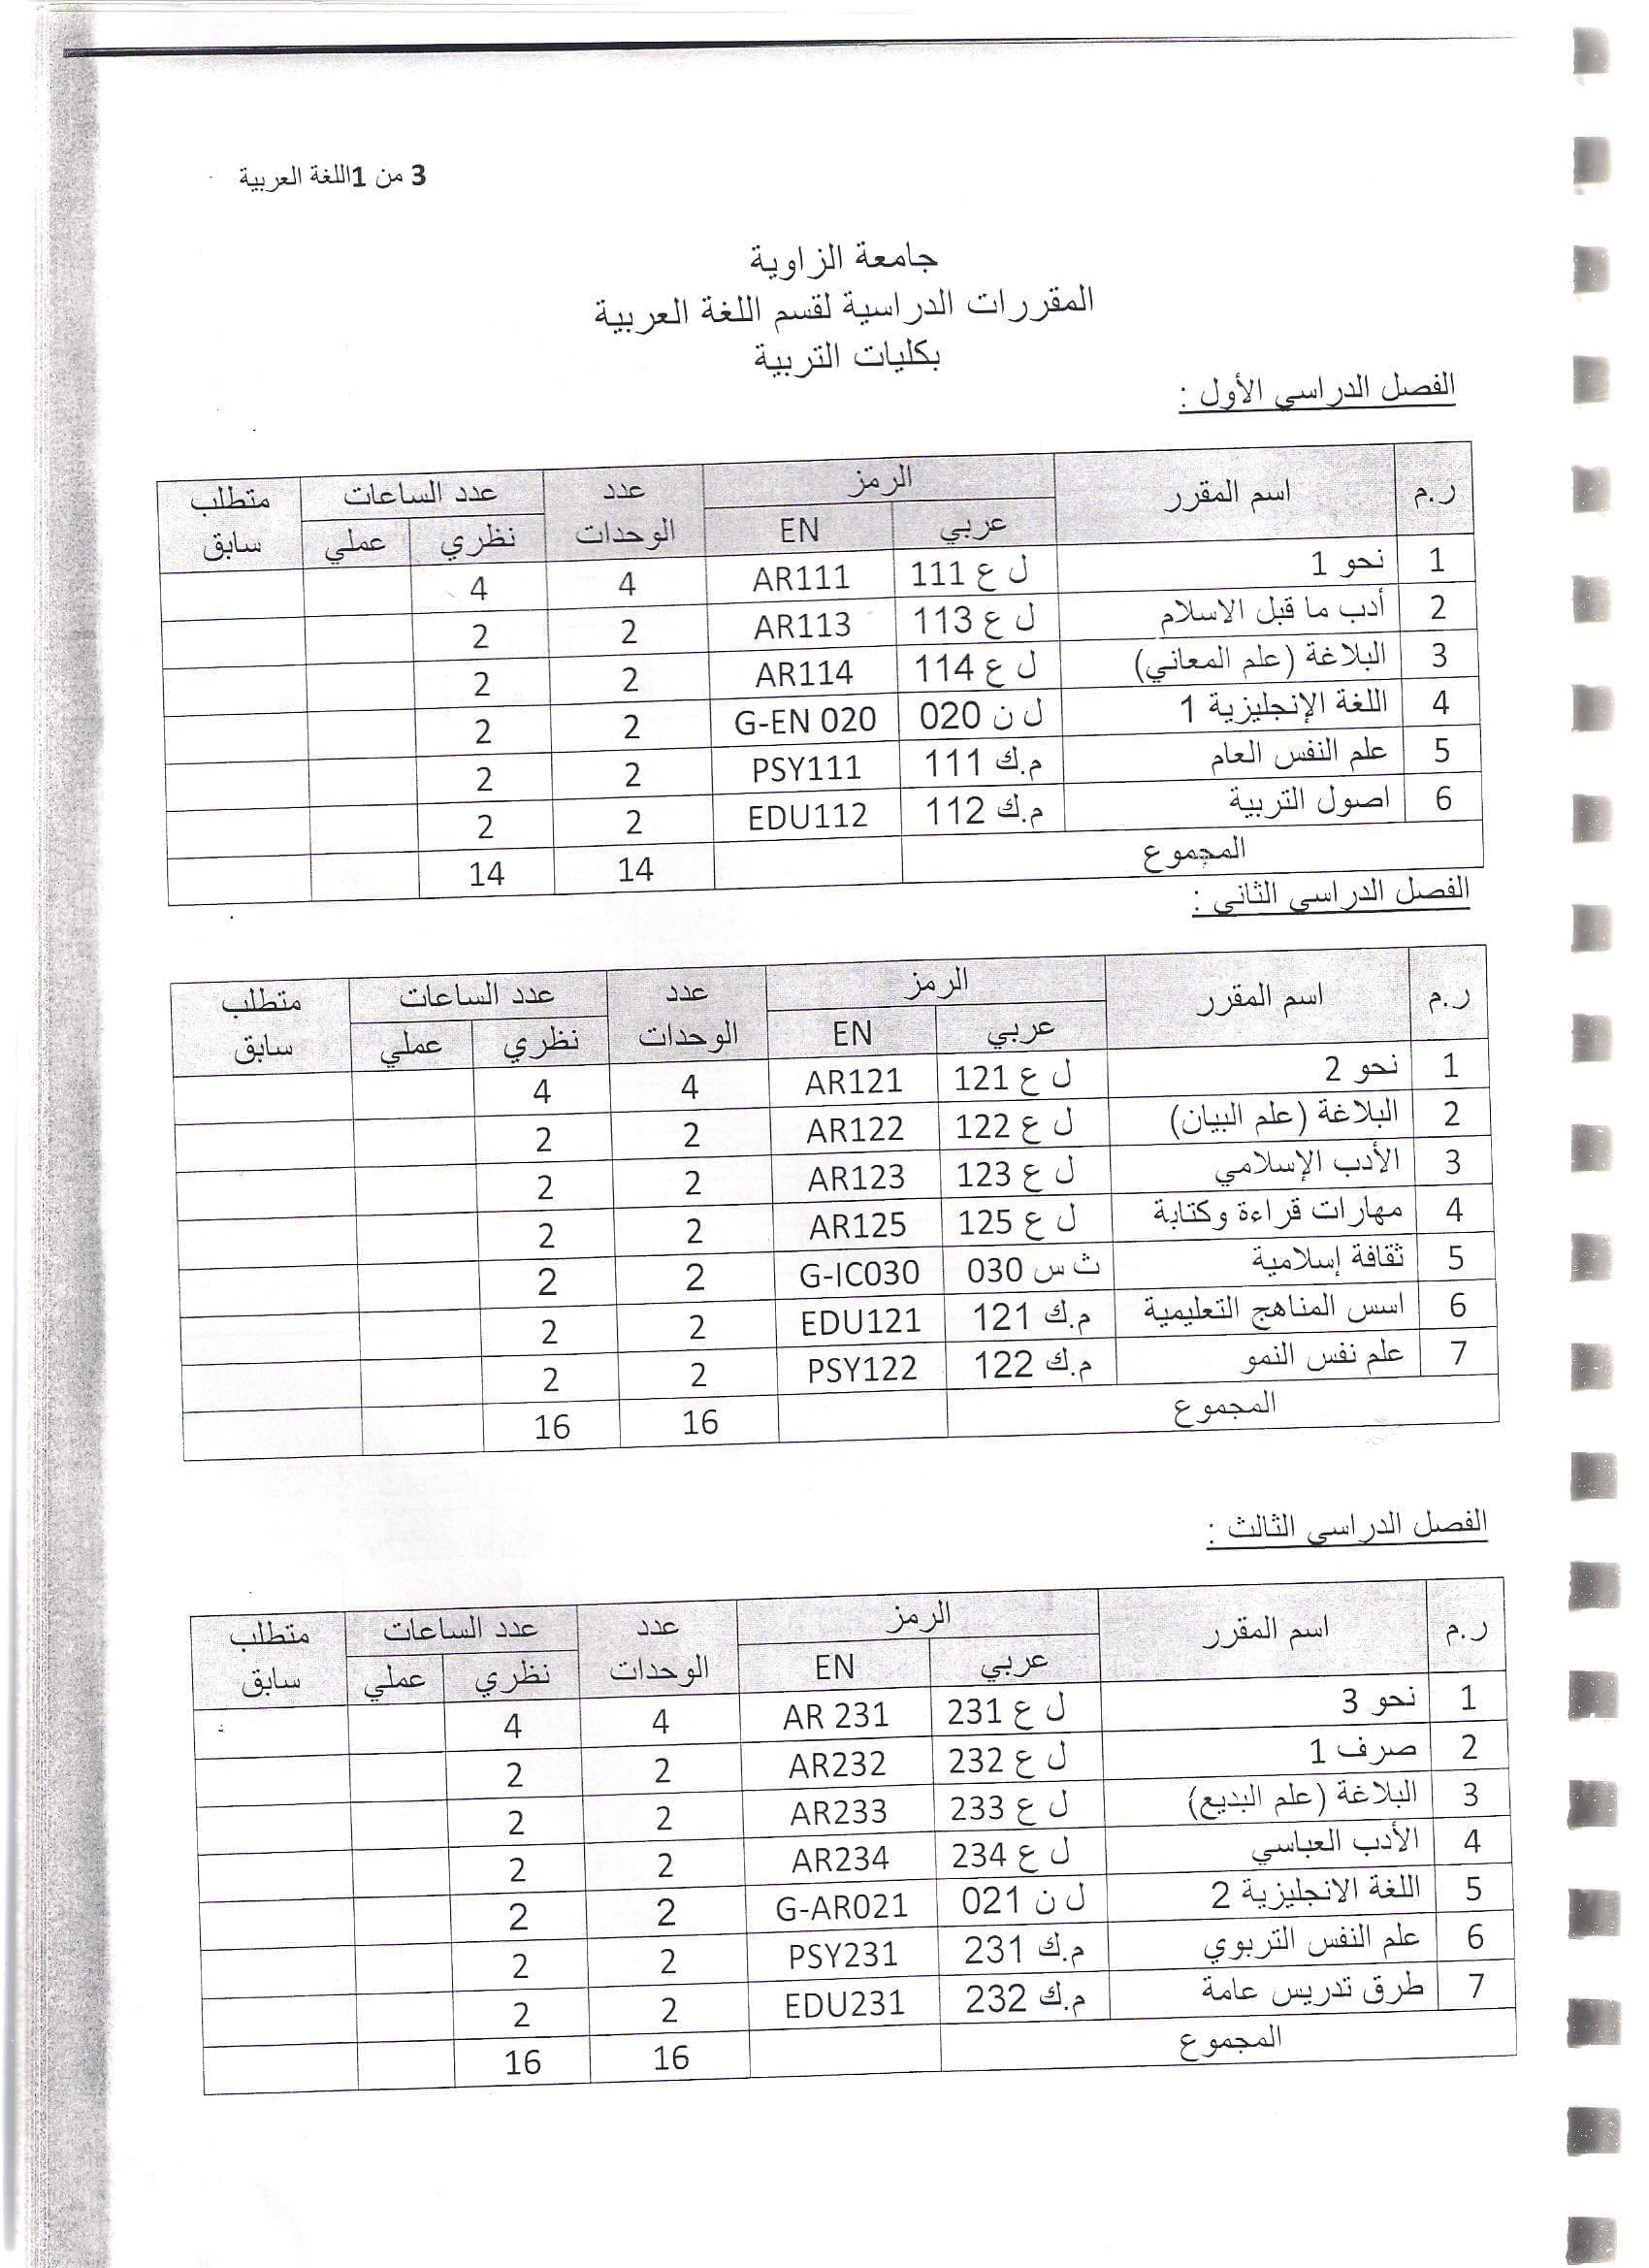 3 من 1اللغة العربية
جامعة الزاوية
المقررات الدراسية لقسم اللغة العربية
بكليات التربية
الفصل الدراسي الأول :
ر.م اسم المقرر الرمز عدد الوحدات عدد الساعات متطلب سابق
عربي EN نظري عملي
1 نحو 1 ل ع 111 AR111 4 4
2 أدب ما قبل الاسلام ل ع 113 AR113 2 2
3 البلاغة (علم المعاني) ل ع 114 AR114 2 2
4 اللغة الإنجليزية 1 ل ن 020 G-EN 020 2 2
5 علم النفس العام م.ك 111 PSY111 2 2
6 اصول التربية م.ك 112 EDU112 2 2
المجموع 14 14
الفصل الدراسي الثاني :
ر.م اسم المقرر الرمز عدد الوحدات عدد الساعات متطلب سابق
عربي EN نظري عملي
1 نحو 2 ل ع 121 AR121 4 4
2 البلاغة (علم البيان) ل ع 122 AR122 2 2
3 الأدب الإسلامي ل ع 123 AR123 2 2
4 مهارات قراءة وكتابة ل ع 125 AR125 2 2
5 ثقافة إسلامية ث س 030 G-IC030 2 2
6 اسس المناهج التعليمية م.ك 121 EDU121 2 2
7 علم نفس النمو م.ك 122 PSY122 2 2
المجموع 16 16
الفصل الدراسي الثالث :
ر.م اسم المقرر الرمز عدد الوحدات عدد الساعات متطلب سابق
عربي EN نظري عملي
1 نحو 3 ل ع 231 AR 231 4 4
2 صرف 1 ل ع 232 AR232 2 2
3 البلاغة (علم البديع) ل ع 233 AR233 2 2
4 الأدب العباسي ل ع 234 AR234 2 2
5 اللغة الانجليزية 2 ل ن 021 G-AR021 2 2
6 علم النفس التربوي م.ك 231 PSY231 2 2
7 طرق تدريس عامة م.ك 232 EDU231 2 2
المجموع 16 16